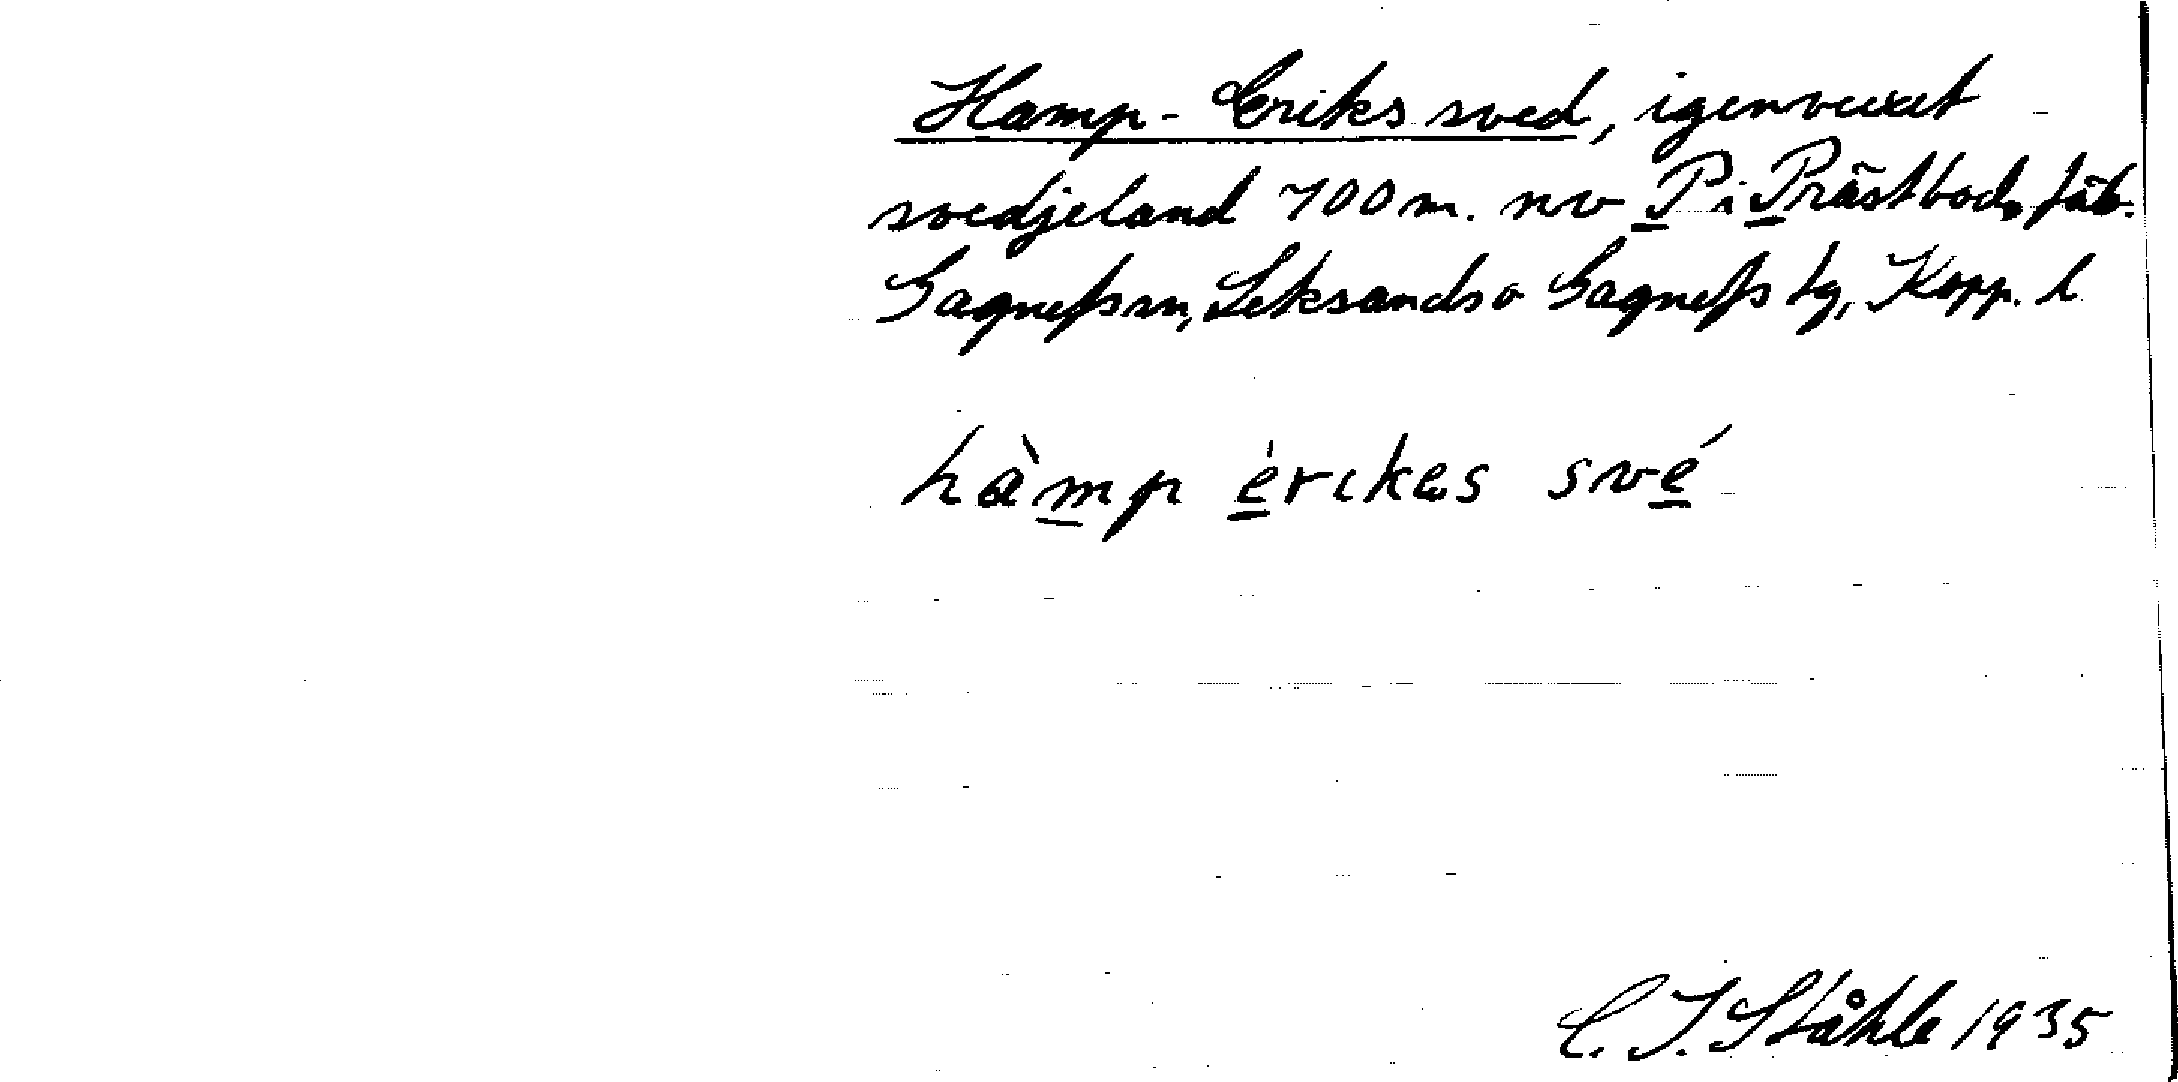 Hamp-Eriks sved, igenvuxet
svedjeland 700 m. nv P i Prästbod, fäb.
Gagnefs sn, Leksands o Gagnefs tg, Kopp. l
hàmp érikes své
C. I. Ståhle 1935